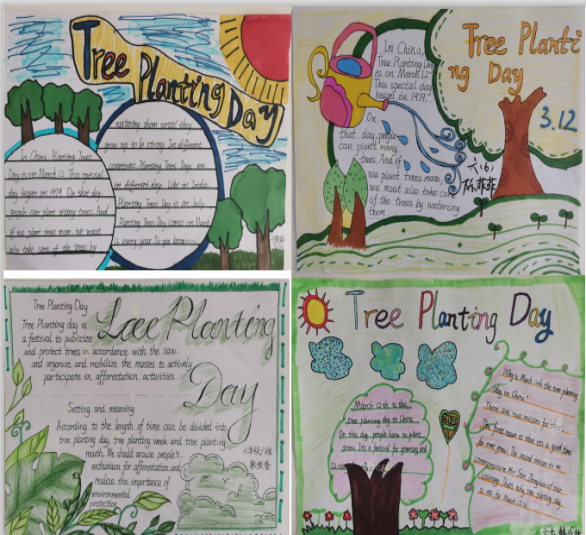 Tree Planting Day
In China, Planting Trees
Day is on March 12. This special
day began in 1979. On that day,
people can plant many trees. And
if we plant trees more, we must
also take care of the trees by
watering them until they
grow up to be strong. In different
countries, Planting Trees Day are
on different day. Like in India
Planting Trees Day is on July.
Planting Trees Day comes on March
is every year. Do you know
Tree Planti
ng Day
3.12
In China,
Tree Planting Day
is on March 12.
This special day
began in 1979.
On
that day, people
can plant many
trees. And if
we plant trees more,
we must also take care
of the trees by watering
them
六(6)
Tree Planting Day
Tree Planting
Day
Tree Planting day is
a festival to publicize
and protect trees in accordance with the saw.
and organize and mobilize the masses to actively
participate in afforestation activities.
Setting and meaning
According to the length of time can be divided into
tree planting day, tree planting week and tree planting
mouth. We should arouse people's
enthusiasm for afforestation and
realize the importance of
environmental
protection
六年级六班
Tree Planting Day
March 12th is the
tree planting day in China.
On this day, people have to plant
trees. It's a festival for growing and
3.12
Why is March 12th the tree planting
day in China?
There are two reasons for
The first reason is that it's a good time
for tree grow. The second reason is to
commemorate Mr Sun Zhongshan of our
country. That's why tree planting day
is on the March 12th.